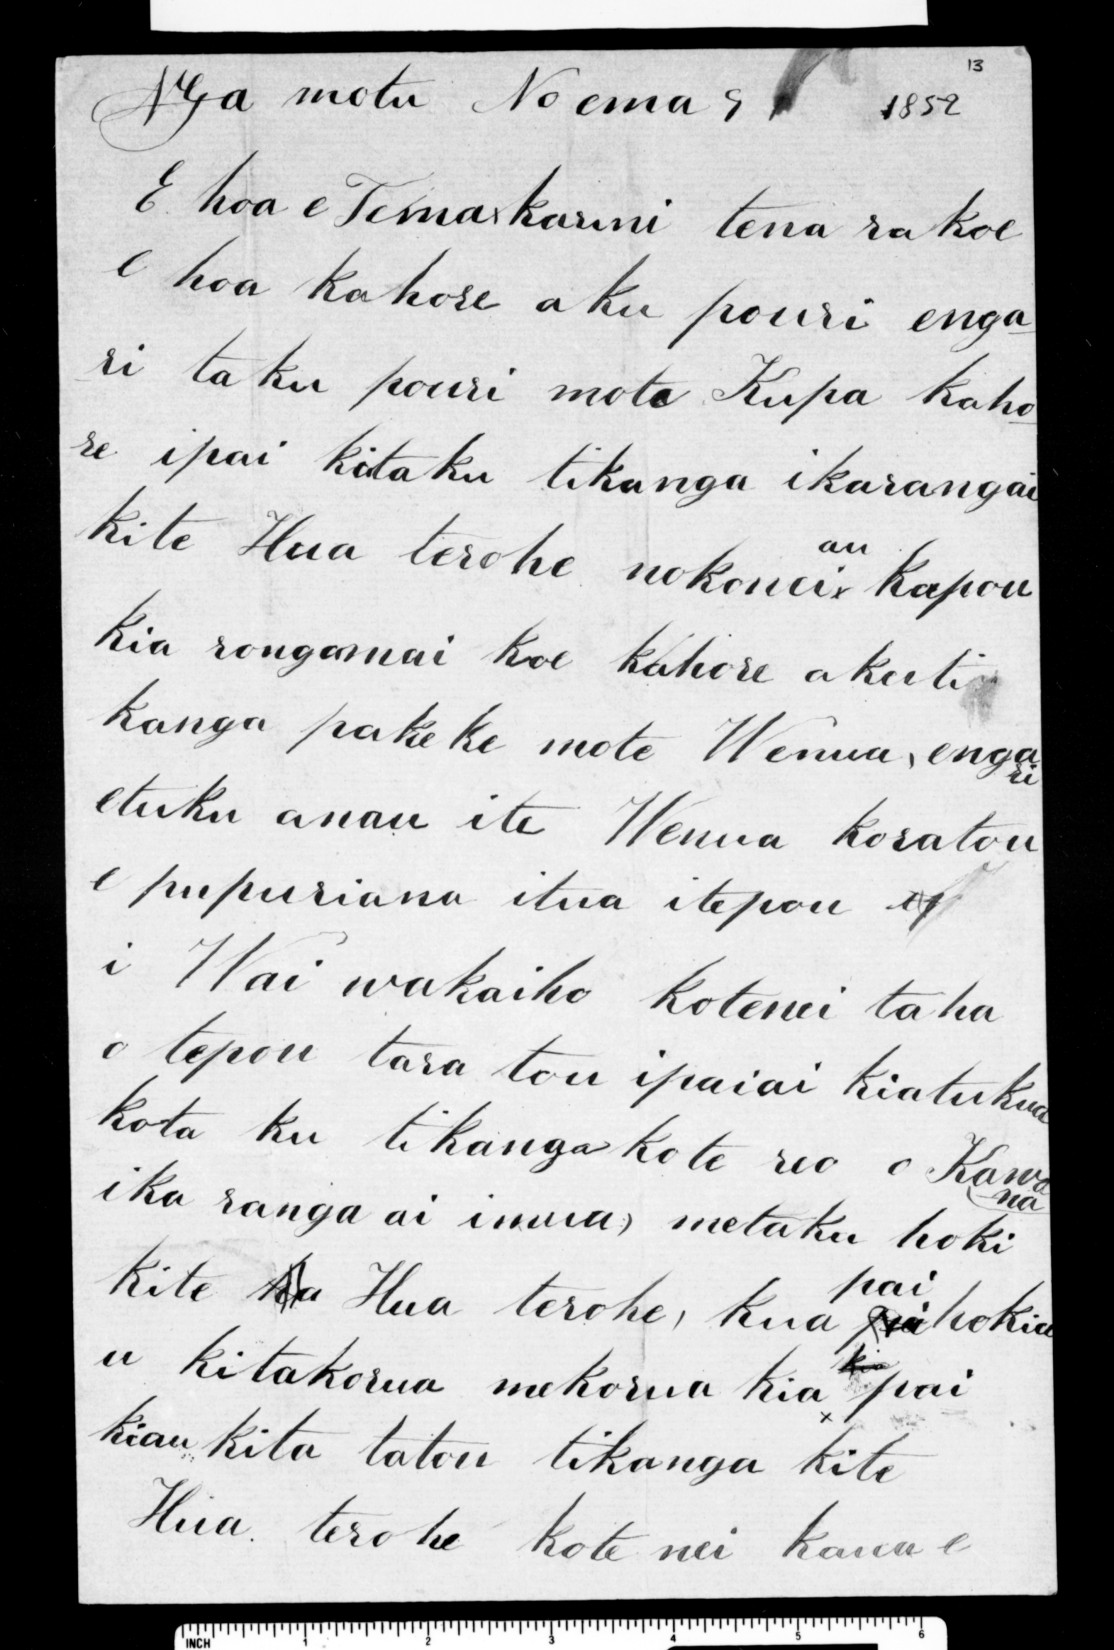 13
NGa motu No ema 9 1852
E hoa e Temakarini tena ra koe
e hoa kahore aku pouri enga
ri taku pouri mote Kupa kaho
re ipai kitaku tikanga ikarangai
kite Hua terohe nokonei au kapou
kia rongomai koe kahore akuti
kanga pakeke mote Wenua, engari
etuku anau ite Wenua koratou
e pupuriana itua itepou
i Wai wakaiho kotenei taha
o tepou tara tou ipaiai kiatukua
kota ku tikanga kote reo o Kawana
ika ranga ai imua, metaku hoki
kite Hua terohe, kua pai hokia
u kitakorua mekorua kia pai
kiau kita tatou tikanga kite
Hua. terohe kote nei kaua e
INCH 1 2 3 4 5 6